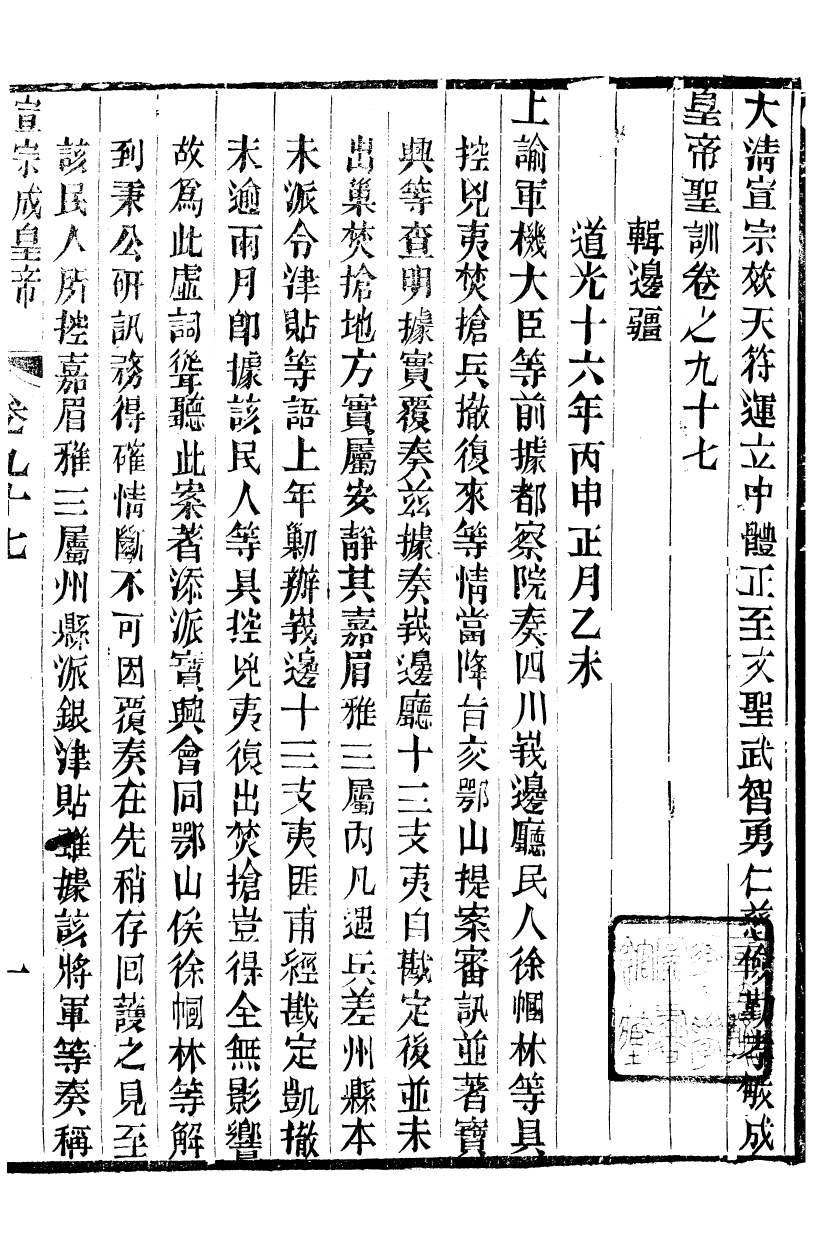 大清宣宗效天符運立中體正至文聖武智勇仁慈儉勤孝敏成
皇帝聖訓卷之九十七
輯邊疆
道光十六年丙申正月乙未
上諭軍機大臣等前據都察院奏四川峩邊廳民人徐幗林等具
控兇夷焚搶兵撤復來等情當降旨交鄂山提案審訊並著寶
興等查明據實覆奏茲據奏峩邊廳十三支夷自戡定後並未
出巢焚搶地方實屬安靜其嘉眉雅三屬內凡遇兵差州縣本
未派令津貼等語上年勦辦峩邊十三支夷匪甫經戡定凱撤
未逾兩月卽據該民人等具控兇夷復出焚搶豈得全無影響
故爲此虛詞聳聽此案著添派寶興會同鄂山俟徐幗林等解
到秉公研訊務得確情斷不可因覆奏在先稍存回護之見至
該民人所控嘉眉雅三屬州縣派銀津貼雖據該將軍等奏稱
宣宗成皇帝 卷九十七 一